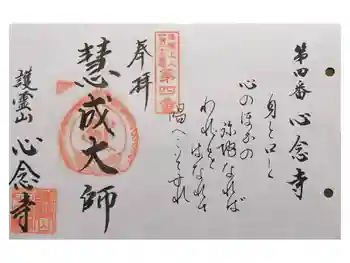 第四番 心念寺
身と口と
心のほかの
弥陀なれば
われを
はなれて
唱へこそすれ
奉拝
第四番
慧成大師
護霊山 心念寺